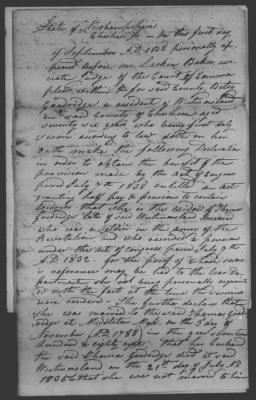 State of Newhampshire
Cheshire ss — On this first day
of September A.D. 1838 personally ap-
peared before me Larkin Baker asso-
ciate Judge of the Court of Common
pleas within & for said County, Betsy
Goodridge a resident of Westmoreland
in said County of Cheshire aged
seventy six who being first duly
sworn according to law doth on her
oath make the following Declaration
in order to obtain the benefit of the
provision made by the act of Congress
passed July 7th 1838 entitled an act
granting half pay & pensions to certain
widows that she is the widow of Thomas
Goodridge late of said Westmoreland deceased
who was a soldier in the army of the
Revolution and who received a pension
under the act of Congress passed June 7th
A.D. 1832. for the proof of which some
reference may be had to the war De-
partment she not being personally acquaint
ed with the facts at the time the services
were rendered. She further declares that
she was married to the said Thomas Good-
ridge at Middleton Mass. on the 3 day of
November (A.D. 1788) in the year seventeen
hundred & eighty eight; that her husband
the said Thomas Goodridge died at said
Westmoreland on the 21st day of July A.D.
1835 that she was not married to him